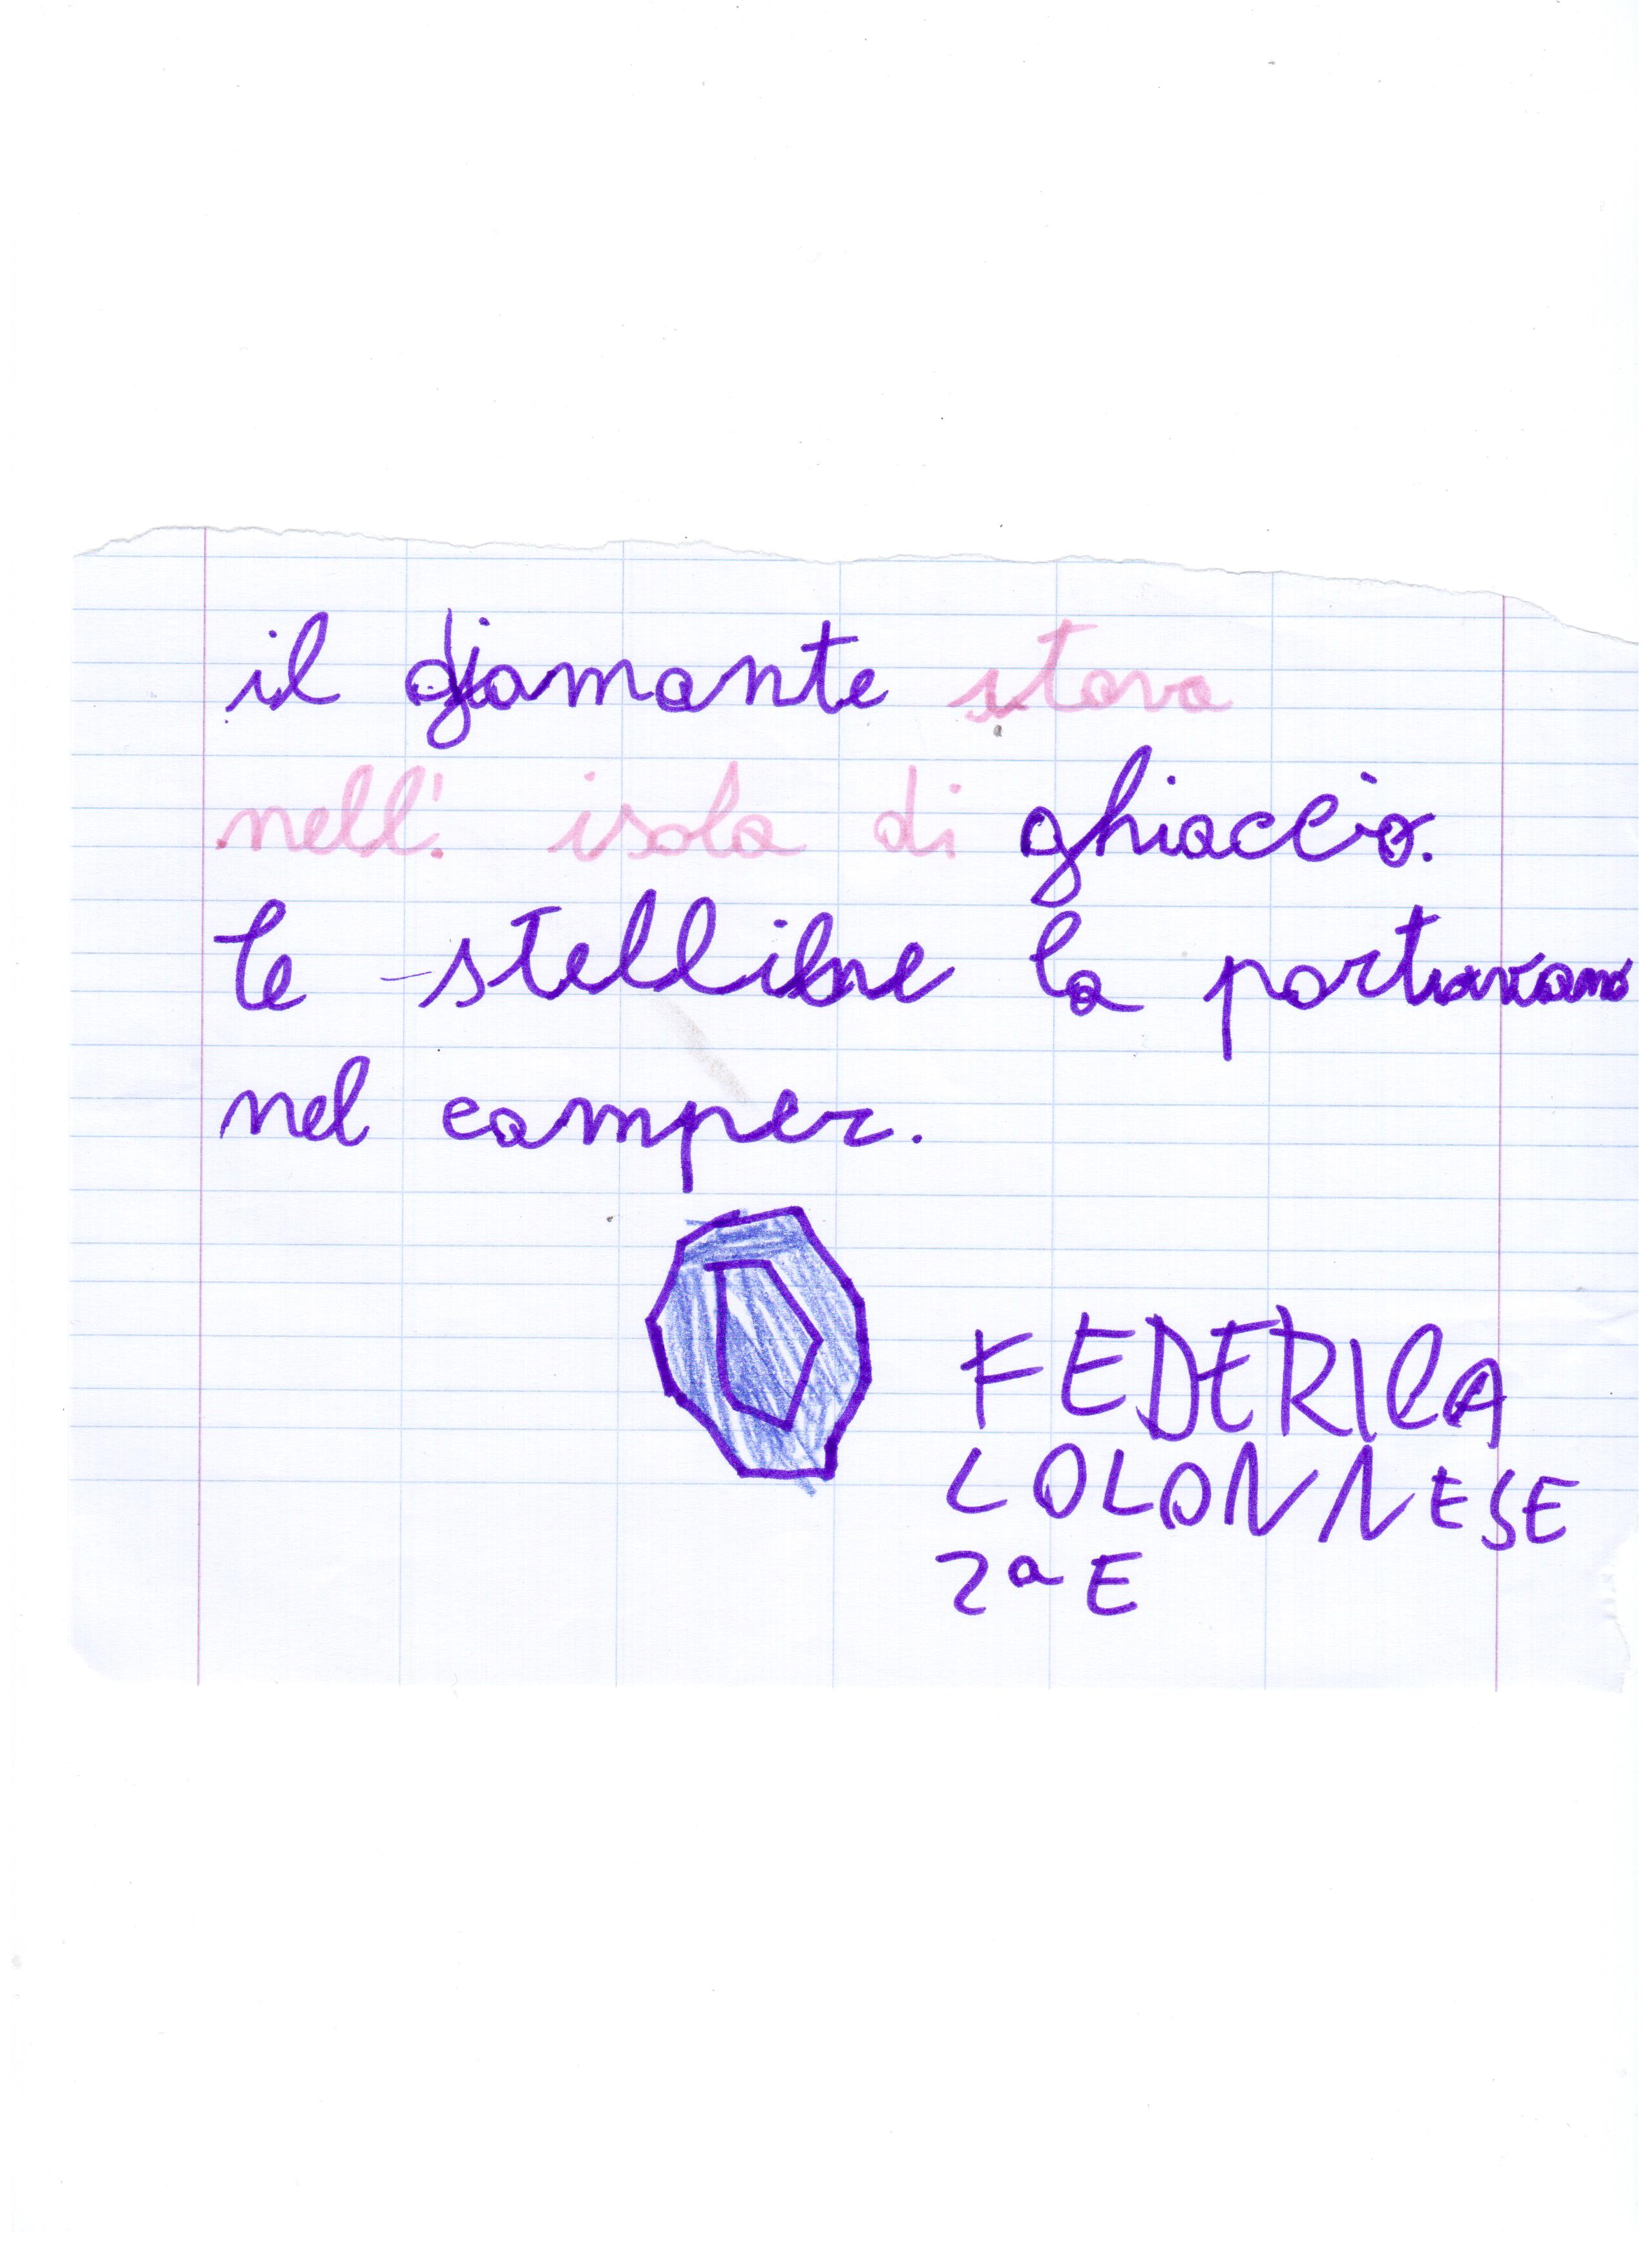 il diamante stava
nell' isola di ghiaccio.
Le stelline la portavano
nel camper.
FEDERICA
COLONNESE
2ª E